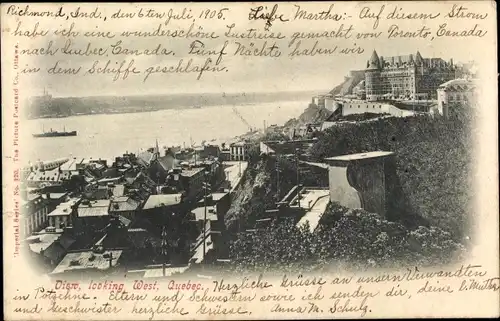 Richmond, Ind., den 6ten Juli, 1905. Liebe Martha:- Auf diesem Strom
habe ich eine wunderschöne Lustreise gemacht von Toronto, Canada
nach Quebec, Canada. Fünf Nächte haben wir
in dem Schiffe geschlafen.
"Imperial Series" No. 782. The Postage Postcard Co., Ottawa.
View, looking West, Quebec.
Herzliche Grüsse an unsern Verwandten
in Potschne. Eltern und Schwestern sowie ich senden dir, deine l. Mutter
und Geschwister herzliche Grüsse, Anna M. Schulz.